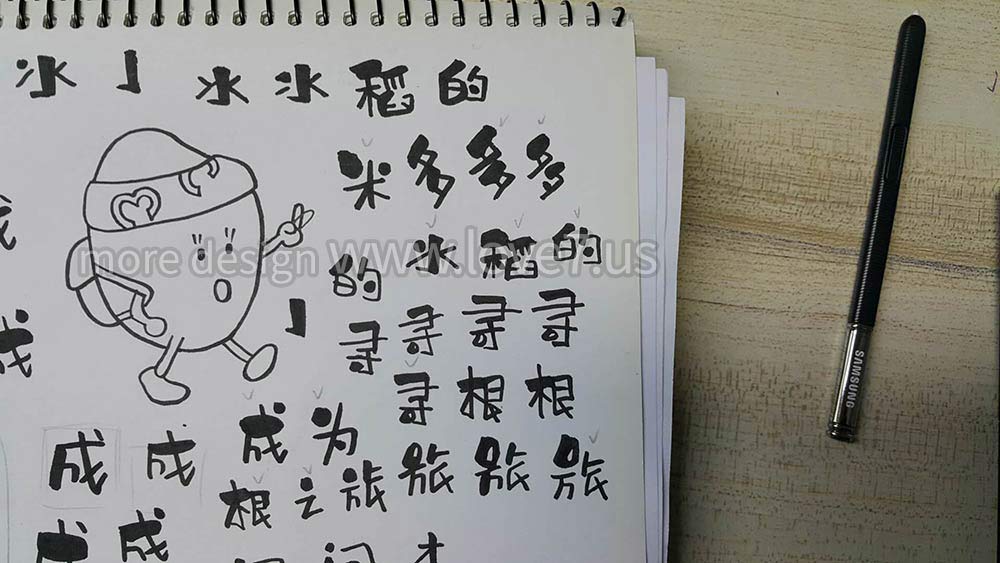 水 亅 水 水 稻 的
米 多 多 多 多
的 水 稻 的
more design www.lovei.us
亅 寻 寻 寻 寻
寻 根 根
成 成 成 为
根 之 旅 旅 旅 旅
成 成
SAMSUNG